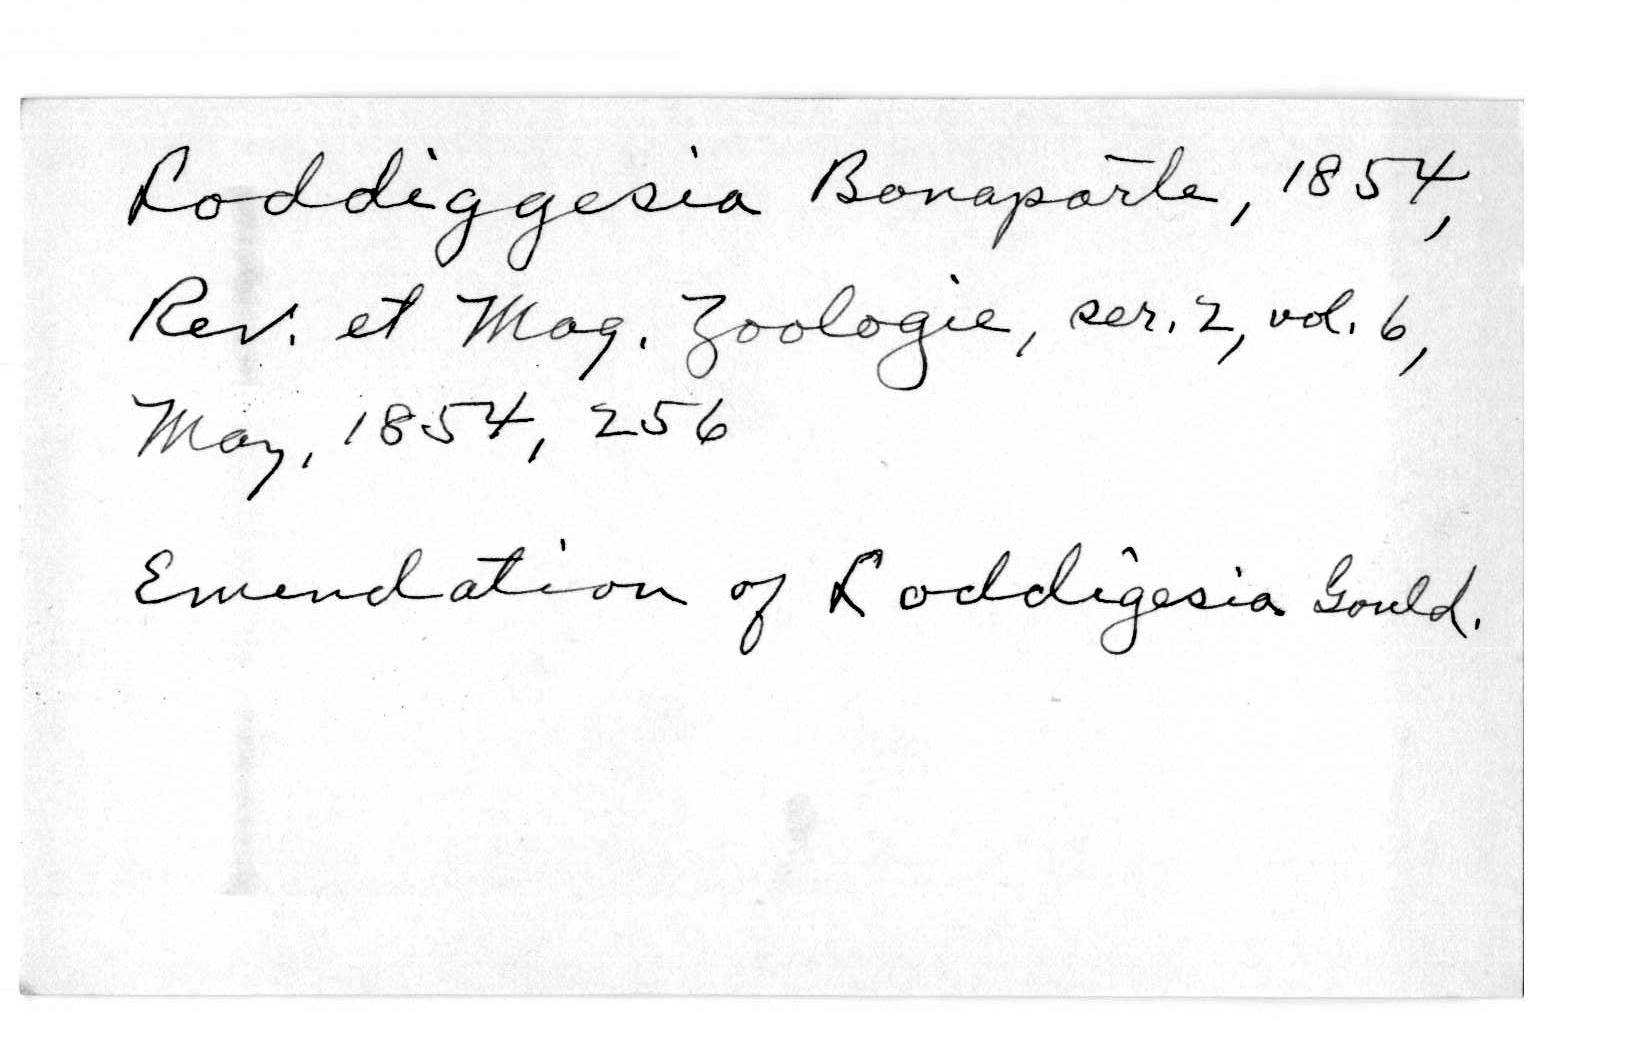 Loddiggesia Bonaparte, 1854,
Rev. et Mag. Zoologie, ser. 2, vol. 6,
May, 1854, 256
Emendation of Loddigesia Gould.